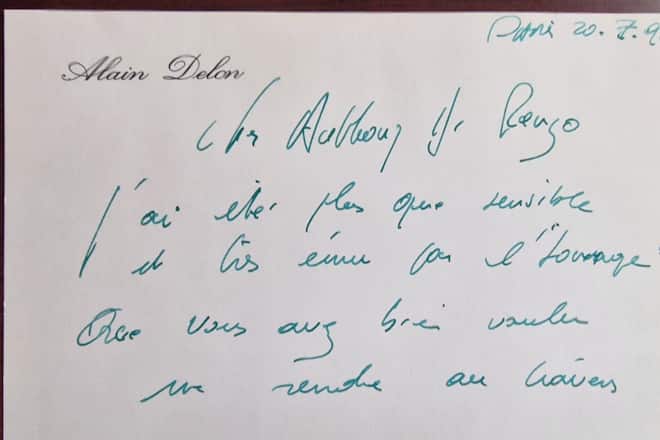 Paris 20.7.9
Alain Delon
Cher Anthony Di Renzo
J'ai été plus que sensible
et très ému par l'"hommage"
Que vous avez bien voulu
me rendre au travers